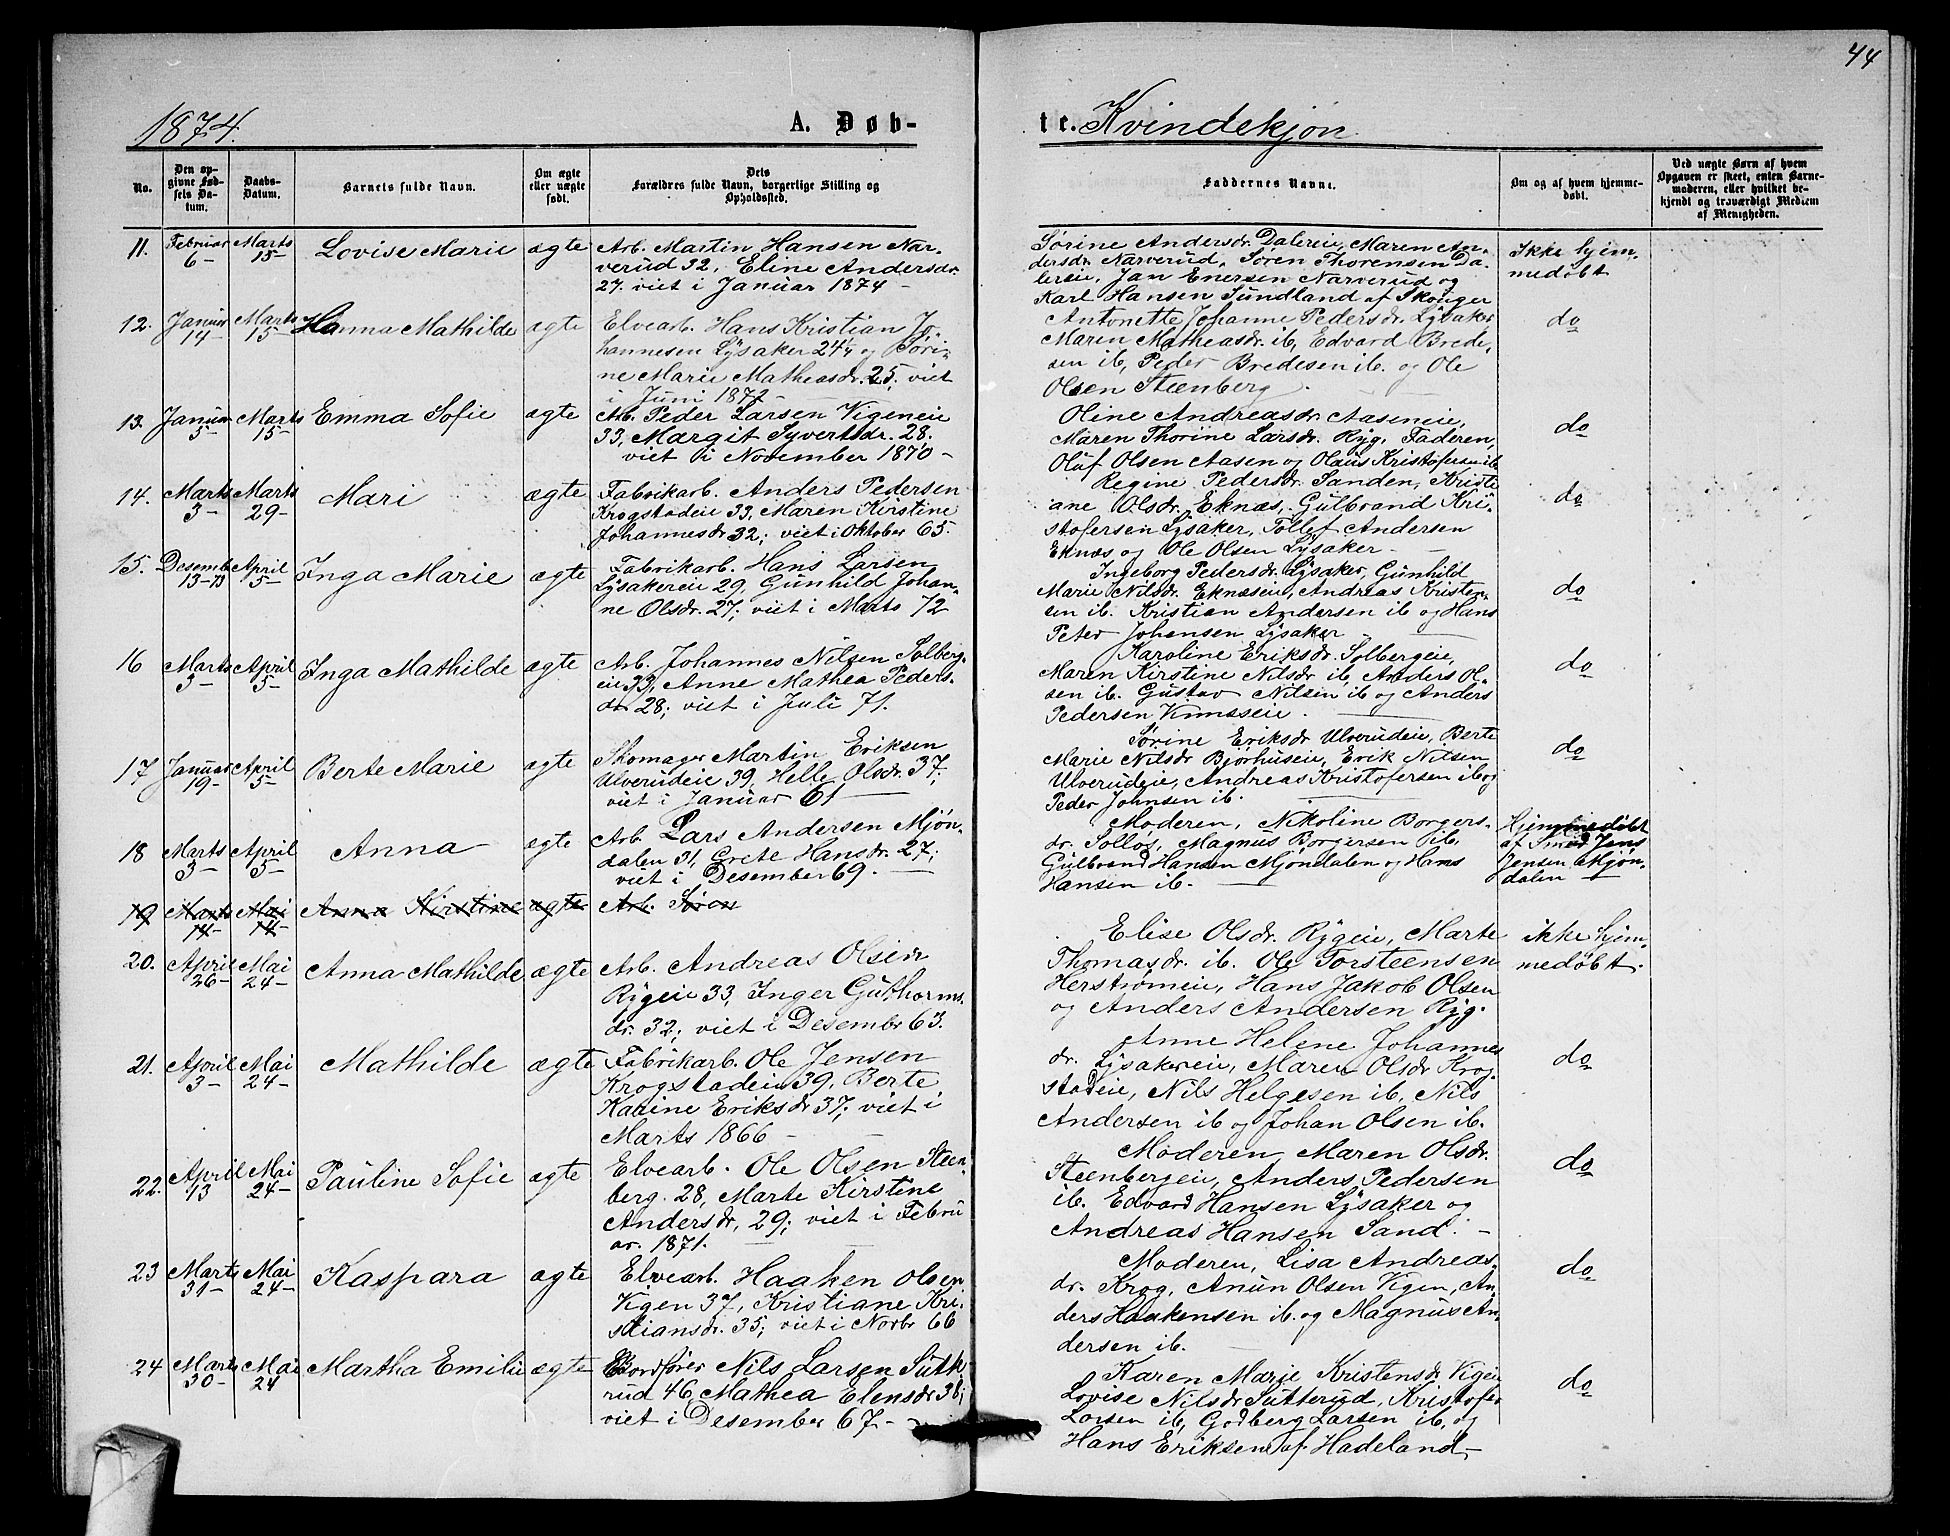 44
1874.
A. Døb-
te. Kvindekjøn
No.
Den op-
givne Fød-
sels Da-
tum.
Daabs-
Datum.
Barnets fulde Navn.
Om ægte
eller uægte
født.
Dets
Forældres fulde Navn, borgerlige Stilling og
Opholdssted.
Faddernes Navne.
Om og af hvem hjemme-
døbt.
Ved uægte Børn af hvem
Opgaven er skeet, enten Barne-
moderen, eller hvilket be-
kjendt og troværdigt Medlem
af Menigheden.
11. Februar 6- Marts 15- Lovise Marie ægte
Arb. Martin Hansen Nar-
verud 32, Eline Andersdr.
27. viet i Januar 1874 -
Sørine Andersdr. Dalereie, Maren An-
dersdr. Narverud, Søren Thorensen Da-
lereie, Jan Enersen Narverud og
Karl Hansen Sundland af Skouger
Ikke hjem-
medøbt
12. Januar 14- Marts 15- Hanna Mathilde ægte
Elvearb. Hans Kristian Jo-
hannesen Lysaker 24½ og Søri-
ne Marie Matheasdr. 25; viet
i Juni 1872 -
Antonette Johanne Pedersdr. Lysaker,
Maren Matheasdr. ib, Edvard Brede-
sen ib, Peder Bredesen ib. og Ole
Olsen Steenberg.
do
13. Januar 5- Marts 15- Emma Sofie ægte
Arb. Peder Larsen Vigeneie
33, Margit Syvertsdr. 28.
viet i November 1870 -
Oline Andreasdr. Aaseneie,
Maren Thorine Larsdr. Ryg, Faderen,
Oluf Olsen Aasen og Olaus Kristofersen ib
do
14. Marts 3- Marts 29- Mari ægte
Fabrikarb. Anders Pedersen
Krogstadeie 33, Maren Kirstine
Johannesdr 32; viet i Oktober 65.
Regine Pedersdr. Sanden, Kristi
ane Olsdr. Eknæs, Gulbrand Kri-
stofersen Lysaker, Tollef Andersen
Eknæs og Ole Olsen Lysaker -
do
15. Desemb 13-73 April 5- Inga Marie ægte
Fabrikarb. Hans Larsen
Lysakereie 29, Gunhild Johan-
ne Olsdr. 27; viet i Marts 72
Ingeborg Pedersdr. Lysaker, Gunhild
Marie Nilsdr. Eknæseie, Andreas Kristen-
sen ib. Kristian Andersen ib og Hans
Peter Johansen Lysaker -
do
16 Marts 3- April 5- Inga Mathilde ægte
Arb. Johannes Nilsen Solberg-
eie 33, Anne Mathea Peders-
dr 28; viet i Juli 71.
Karoline Eriksdr. Solbergeie,
Maren Kirstine Nilsdr ib, Anders Ol-
sen ib. Gustav Nilsen ib og Anders
Pedersen
do
17 Januar 19- April 5- Berte Marie ægte
Skomager Martin Eriksen
Ulverudeie 39, Helle Olsdr. 37;
viet i Januar 61
Sørine Eriksdr Ulverudeie, Berte
Marie Nilsdr Bjørhuseie, Erik Nilsen
Ulverudeie, Andreas Kristofersen ib og
Peder Johnsen ib.
do
18 Marts 3- April 5- Anna ægte
Arb. Lars Andersen Mjøn-
dalen 31, Grete Hansdr. 27;
viet i Desember 69.
Moderen, Nikoline Borgers-
dr. Solløs, Magnus Borgersen ib,
Gulbrand Hansen Mjøndalen og Hans
Hansen ib.
Hjemmedøbt
af Smed Jens
Jensen Mjøn-
dalen
19 Marts 14- Mai 14- Anna Kirstine ægte Arb. Søren
20. April 26- Mai 24- Anna Mathilde ægte
Arb. Andreas Olsen
Rygeie 33, Inger Guthorms-
dr. 32; viet i Desember 63.
Elise Olsdr. Rygeie, Marte
Thomasdr. ib. Ole Torsteensen
Herstrømeie, Hans Jakob Olsen
og Anders Andersen Ryg.
ikke hjem-
medøbt.
21. April 3- Mai 24- Mathilde ægte
Fabrikarb. Ole Jensen
Krogstadeie 39, Berte
Karine Eriksdr 37; viet i
Marts 1866 -
Anne Helene Johannes
dr. Lysakereie, Maren Olsdr Krog-
stadeie, Nils Helgesen ib, Nils
Andersen ib og Johan Olsen ib.
do
22. April 13 Mai 24- Pauline Sofie ægte
Elvearb. Ole Olsen Steen-
berg. 28, Marte Kirstine
Andersdr, 29; viet i Febru
ar. 1871.
Moderen, Maren Olsdr.
Steenbergeie, Anders Pedersen
ib. Edvard Hansen Lysaker og
Andreas Hansen Sand. -
do
23 Marts 31- Mai 24- Kaspara ægte
Elvearb. Haaken Olsen
Vigen 37, Kristiane Kri-
stiansdr. 35; viet i Novbr 66
Moderen, Lisa Andreas-
dr. Krog, Anun Olsen Vigen, An-
ders Haakensen ib. og Magnus An-
dersen ib.
do
24 Marts 30- Mai 24 Martha Emilie ægte
Bordfører Nils Larsen Sutte-
rud 46, Mathea Elensdr 38;
viet i Desember 67 -
Karen Marie Kristensdr Vigen
Lovise Nilsdr Sutterud, Kristofer
Larsen ib, Godberg Larsen ib, og
Hans Eriksen af Hadeland -
do